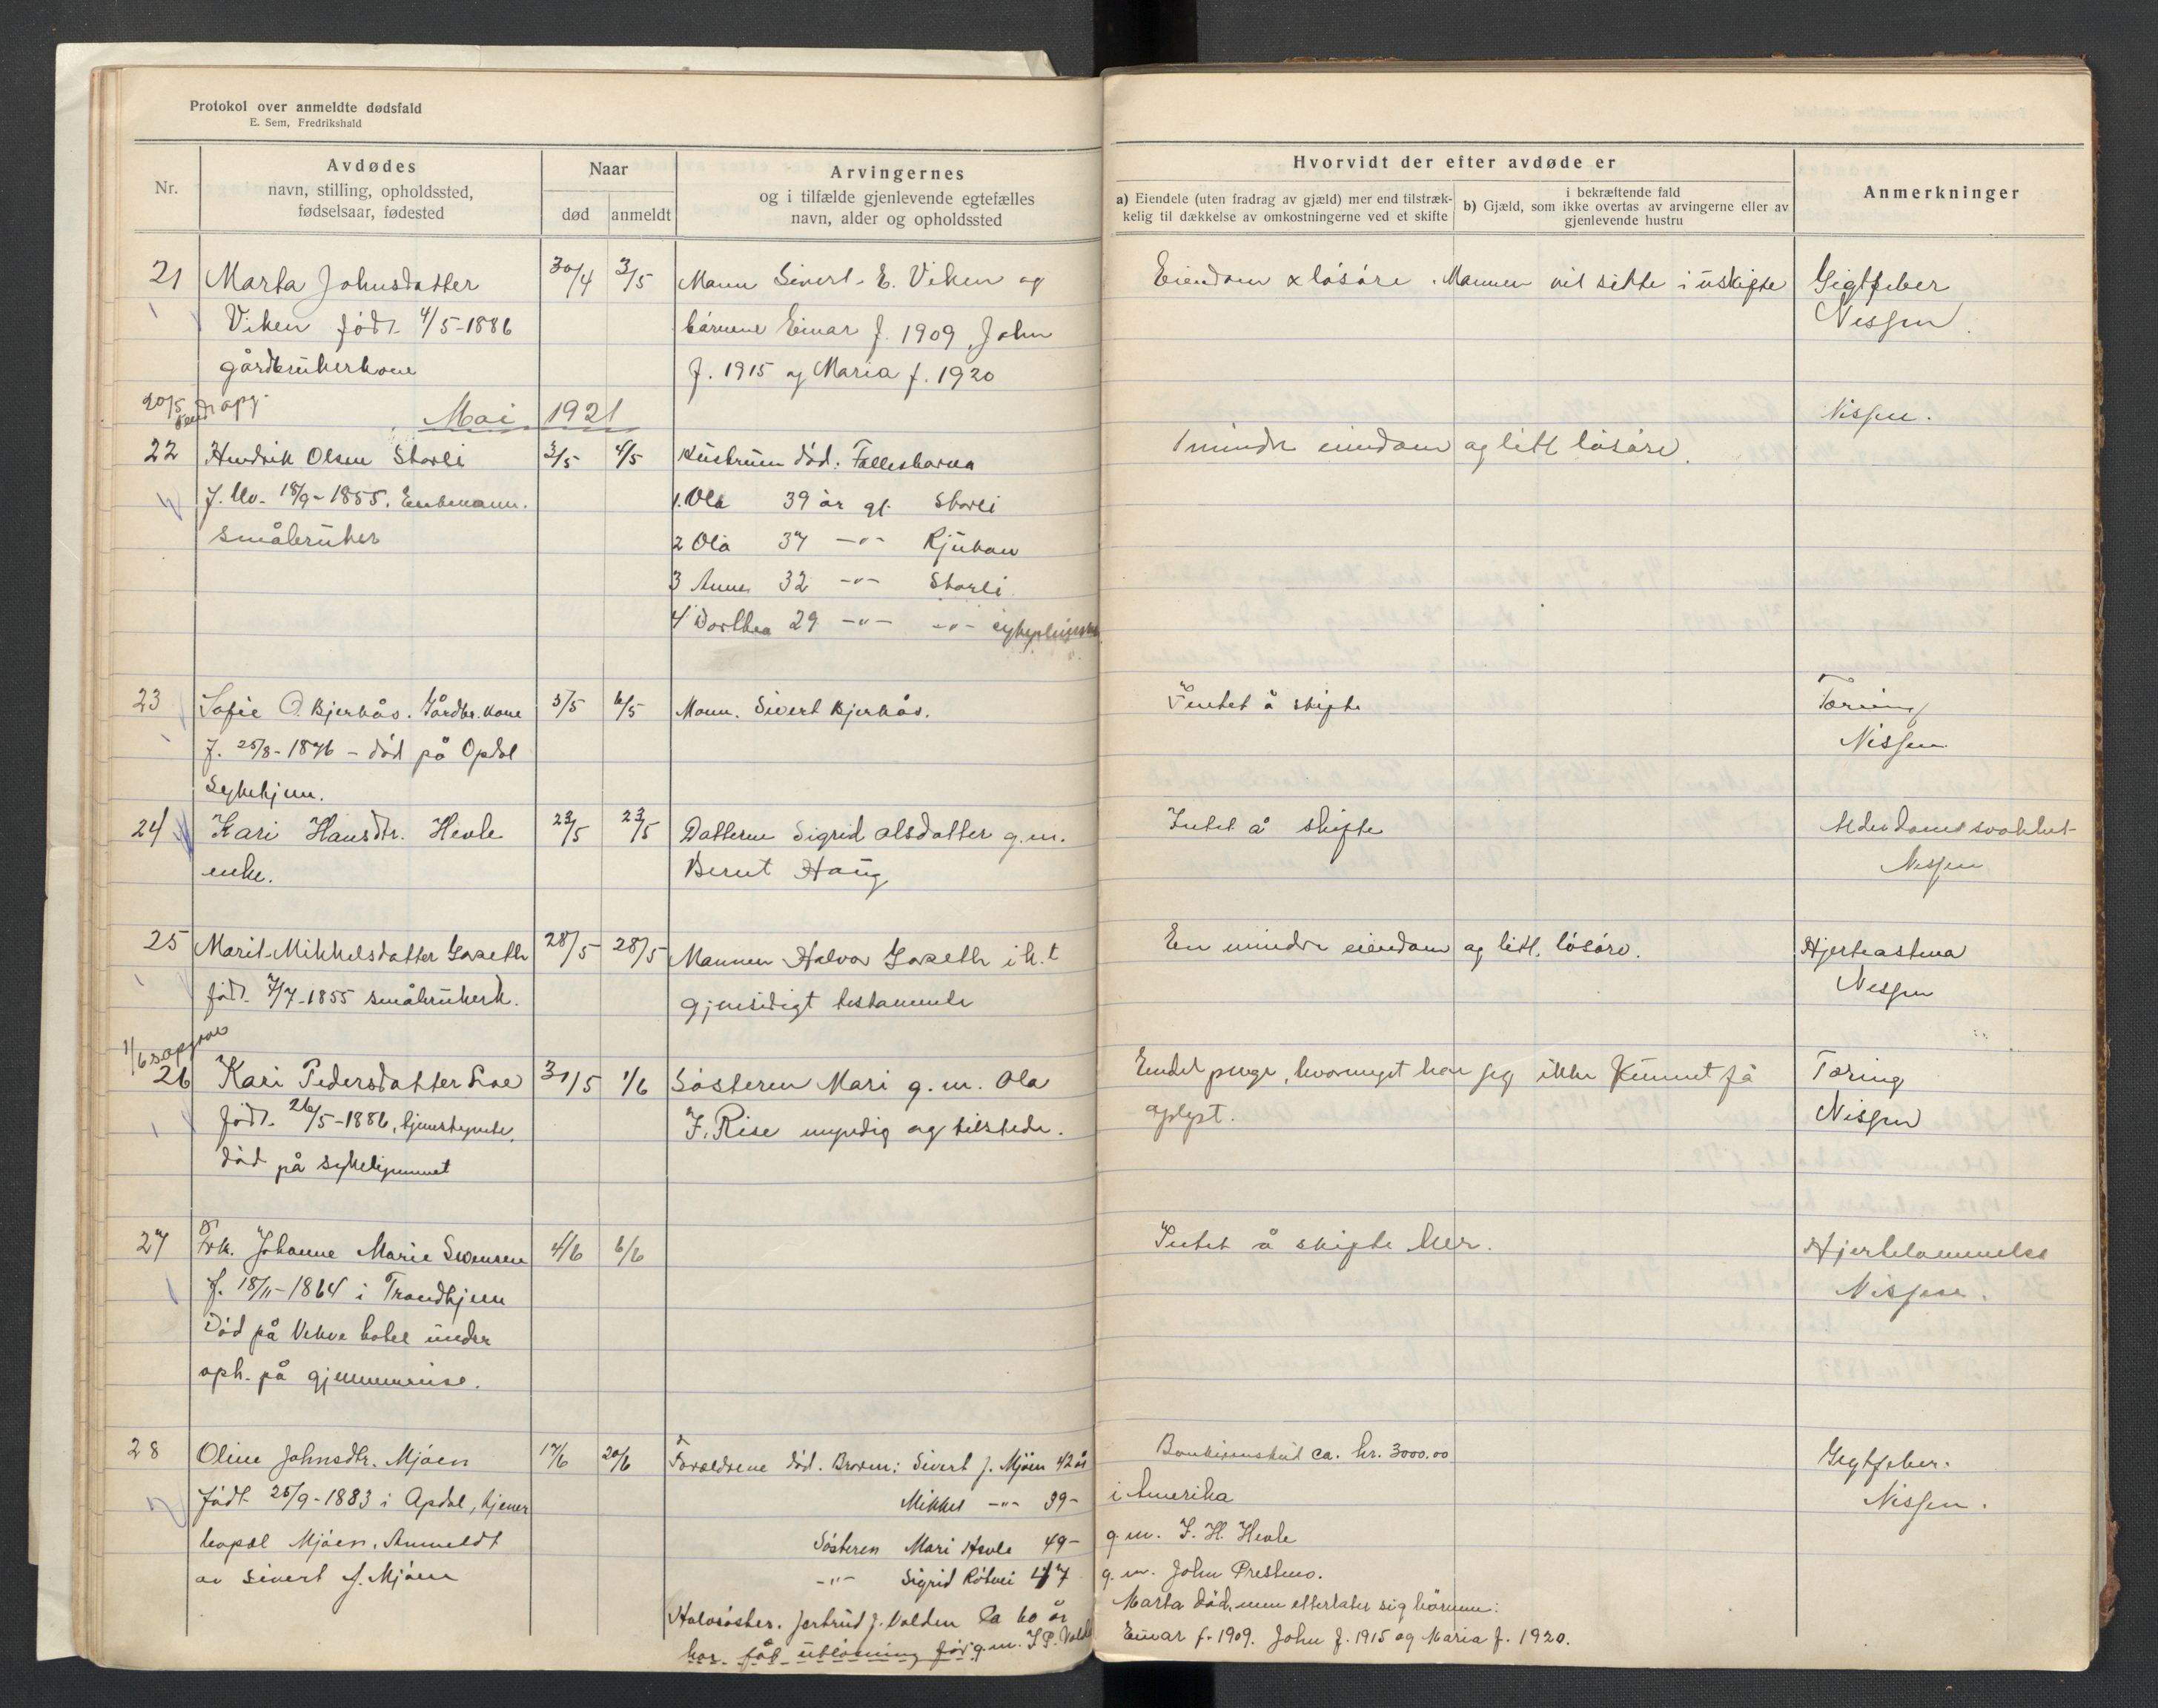 Protokol over anmeldte dødsfald
E. Sem, Fredrikshald
Nr.
Avdødes
navn, stilling, opholdssted,
fødselsaar, fødested
Naar
død
anmeldt
Arvingernes
og i tilfælde gjenlevende egtefælles
navn, alder og opholdssted
Hvorvidt der efter avdøde er
a) Eiendele (uten fradrag av gjæld) mer end tilstræk-
kelig til dækkelse av omkostningerne ved et skifte
i bekræftende fald
b) Gjæld, som ikke overtas av arvingerne eller av
gjenlevende hustru
Anmerkninger
21 Marta Johnsdatter 30/4 3/5 Mann Sivert E. Viken og Eiendom & løsøre. Mannen vil sitte i uskifte Gigtfeber
Viken född 4/5-1886 børnene Einar f. 1909, John Nissen.
gårdbrukerkone f. 1915 og Maria f. 1920
20/5 sendt opg.
Mai 1921 Nissen.
22 Hendrik Olsen Storli 3/5 4/5 Kustruen død. Fællesbarna 1 mindre eiendom og litt løsøre.
f. 18/9-1855. Enkemann. 1. Ola 39 år gl. Storli
småbruker 2 Ola 37 -"- Rjukan
3 Anne 32 -"- Storli
4 Dorthea 29 -"- -"-
23 Sofie O. Bjerkås. Gårdbr. kone 5/5 6/5 Mann. Sivert Bjerkås. Intet å skifte Tæring
f. 25/8-1876 - död på Opdal Nissen
Sykehjem.
24 Kari Hansdtr. Hevle 23/5 23/5 Datteren Sigrid Olsdatter g.m. Intet å skifte Alderdomssvakhet
enke. Bernt Haug Nissen
25 Marit Mikkelsdatter Loseth 28/5 28/5 Mannen Halvor Loseth i h.t. En mindre eiendom og litt løsøre. Hjerteastma
född 7/7-1855 småbrukerk. gjensidigt testamente Nissen
1/6 s. opgave
26 Kari Pedersdatter Loe 31/5 1/6 Søsteren Mari g.m. Ola Endel penge, hvormeget har jeg ikke kunnet få Tæring
född 26/5-1886, tjenestepike, J. Rise myndig og tilstede. oplyst. Nissen
død på sykehjemmet
27 Frk. Johanne Marie Svensen 4/6 6/6 Intet å skifte her. Hjertelammelse
f. 18/11-1864 i Trondhjem Nissen.
Död på Vekve hotel under
oph. på gjennemreise.
28 Oline Johnsdtr. Mjøen 17/6 20/6 Forældrene död. Broren: Sivert J. Mjøen 42 år Bankinnskud ca. kr. 3000.00 Gigtfeber.
född 25/9-1883 i Opdal, tjener Mikkel -"- 39- i Amerika Nissen.
hospl Mjøen. Anmeldt Søsteren Mari Hevle 49- g.m. J. H. Hevle
av Sivert J. Mjøen -"- Sigrid Rötvei 47 g.m. John Prestmo.
Halvsøster. Jertrud J. Volden ca 60 år Marta död, men etterlater sig børnene:
har fåt utløsning før g.m. J. P. Volden Einar f. 1909. John f. 1915 og Maria f. 1920.